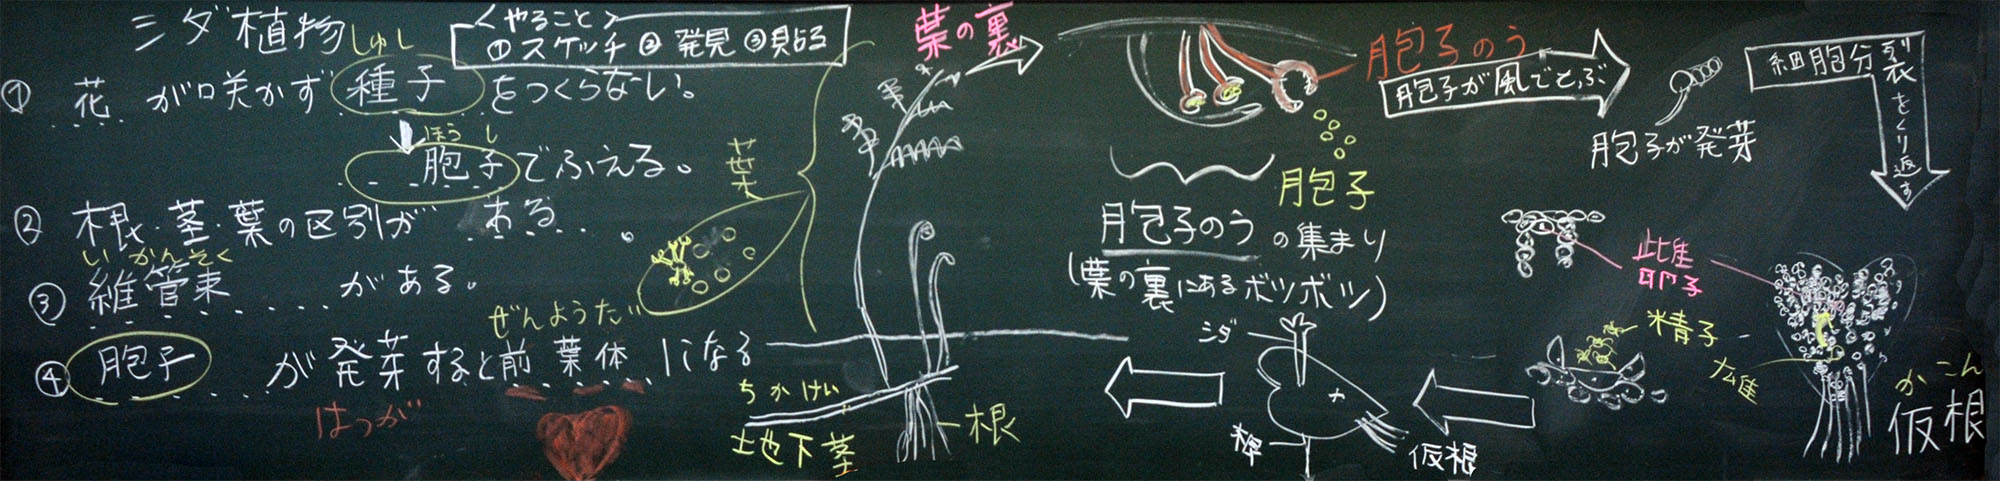 シダ植物
<やること>
①スケッチ ②発見 ③貼る
しゅし
① 花が咲かず種子をつくらない。
ほうし
胞子でふえる。
② 根・茎・葉の区別がある。
いかんそく
③ 維管束がある。
ぜんようたい
④ 胞子が発芽すると前葉体になる
はつが
葉
ちかけい
地下茎
根
葉の裏
胞子のう
胞子
胞子のうの集まり
(葉の裏にあるボツボツ)
胞子が風でとぶ
胞子が発芽
細胞分裂をくり返す
雌
卵子
精子
雄
かこん
仮根
シダ
根
仮根